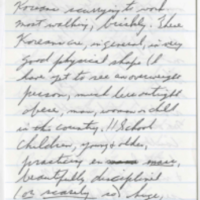 Koreans scurrying to work
most walking, briskly. These
Koreans are, in general, in very
good physical shape (I
have yet to see an overweight
person, much less outright
obese, man, woman or child
in this country.) School
children, young & other,
practicing en masse,
beautifully disciplined
(or scarcely so), huge,